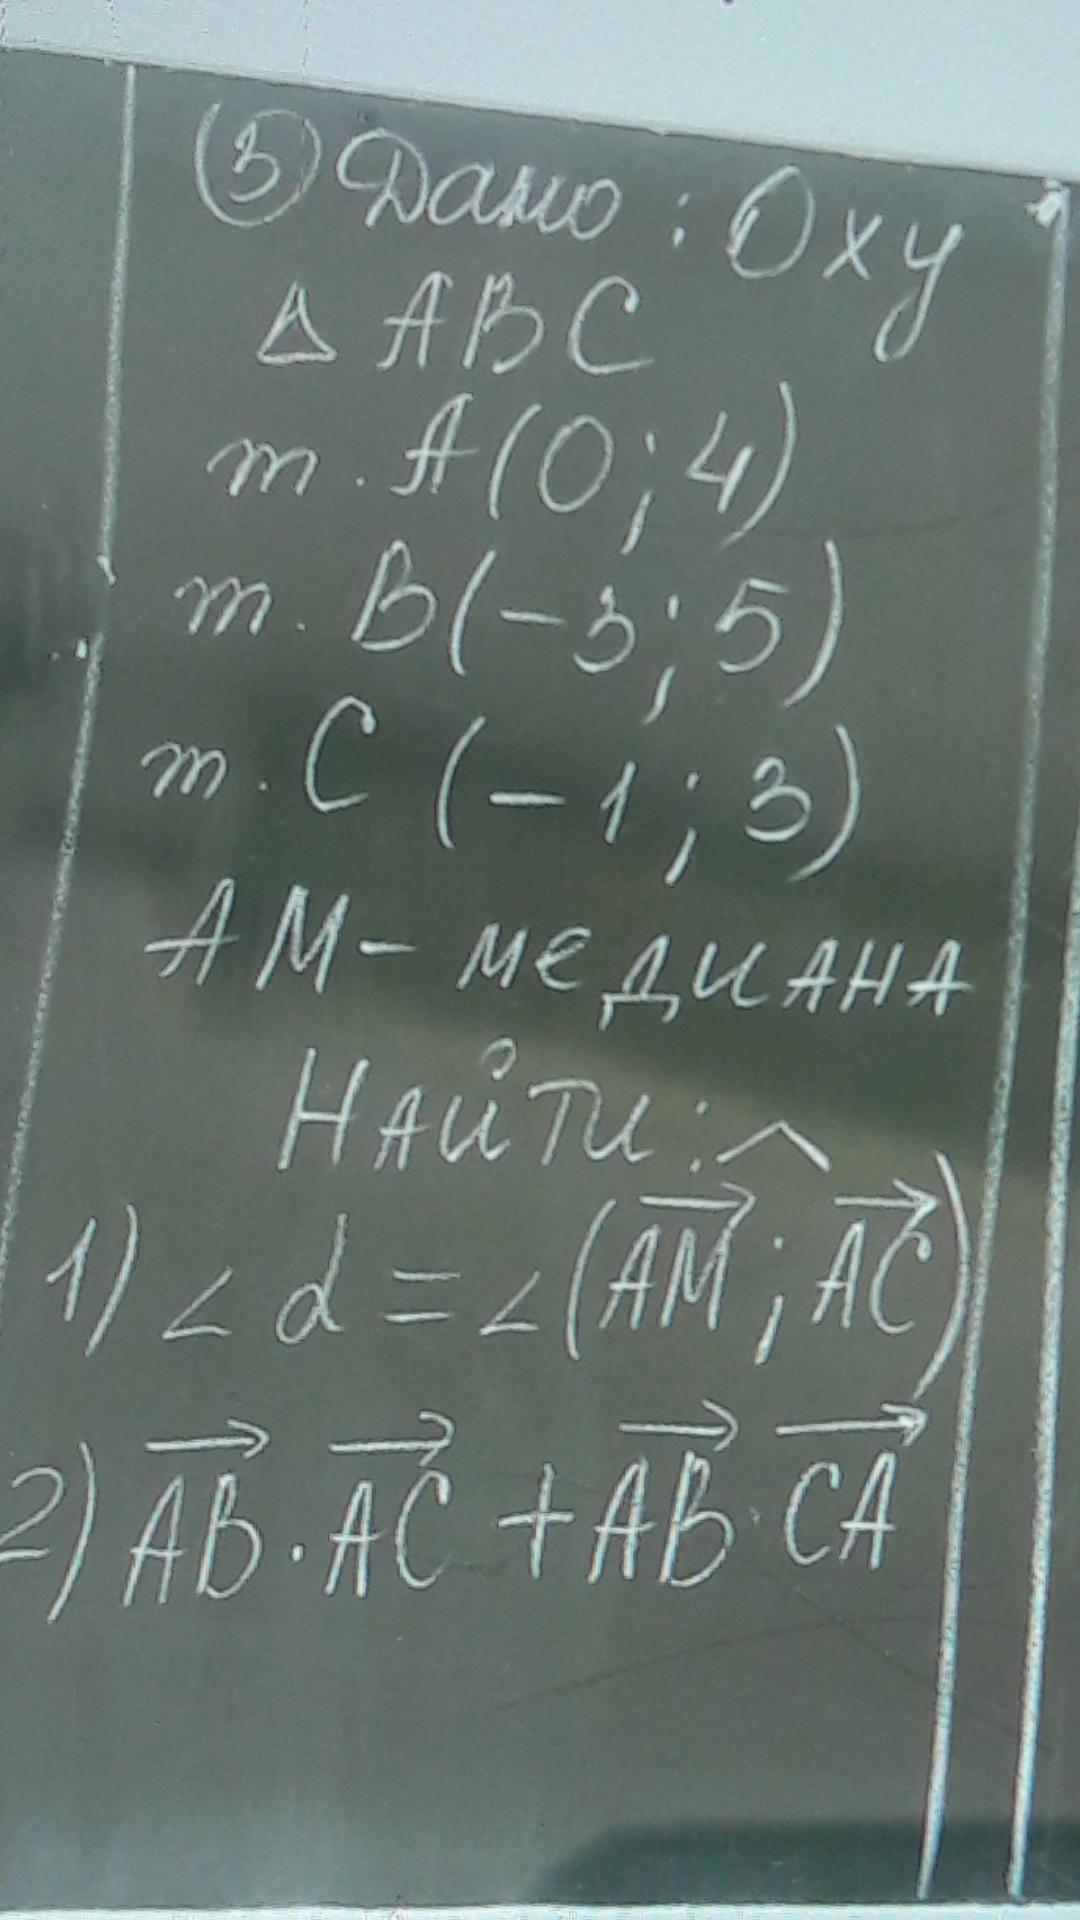 3) Дано: Oxy
△ ABC
т. A(0; 4)
т. B(-3; 5)
т. C (-1; 3)
AM - медиана
Найти:
1) ∠ α = ∠(AM⃗ ^; AC⃗)
2) AB⃗ · AC⃗ + AB⃗ · CA⃗